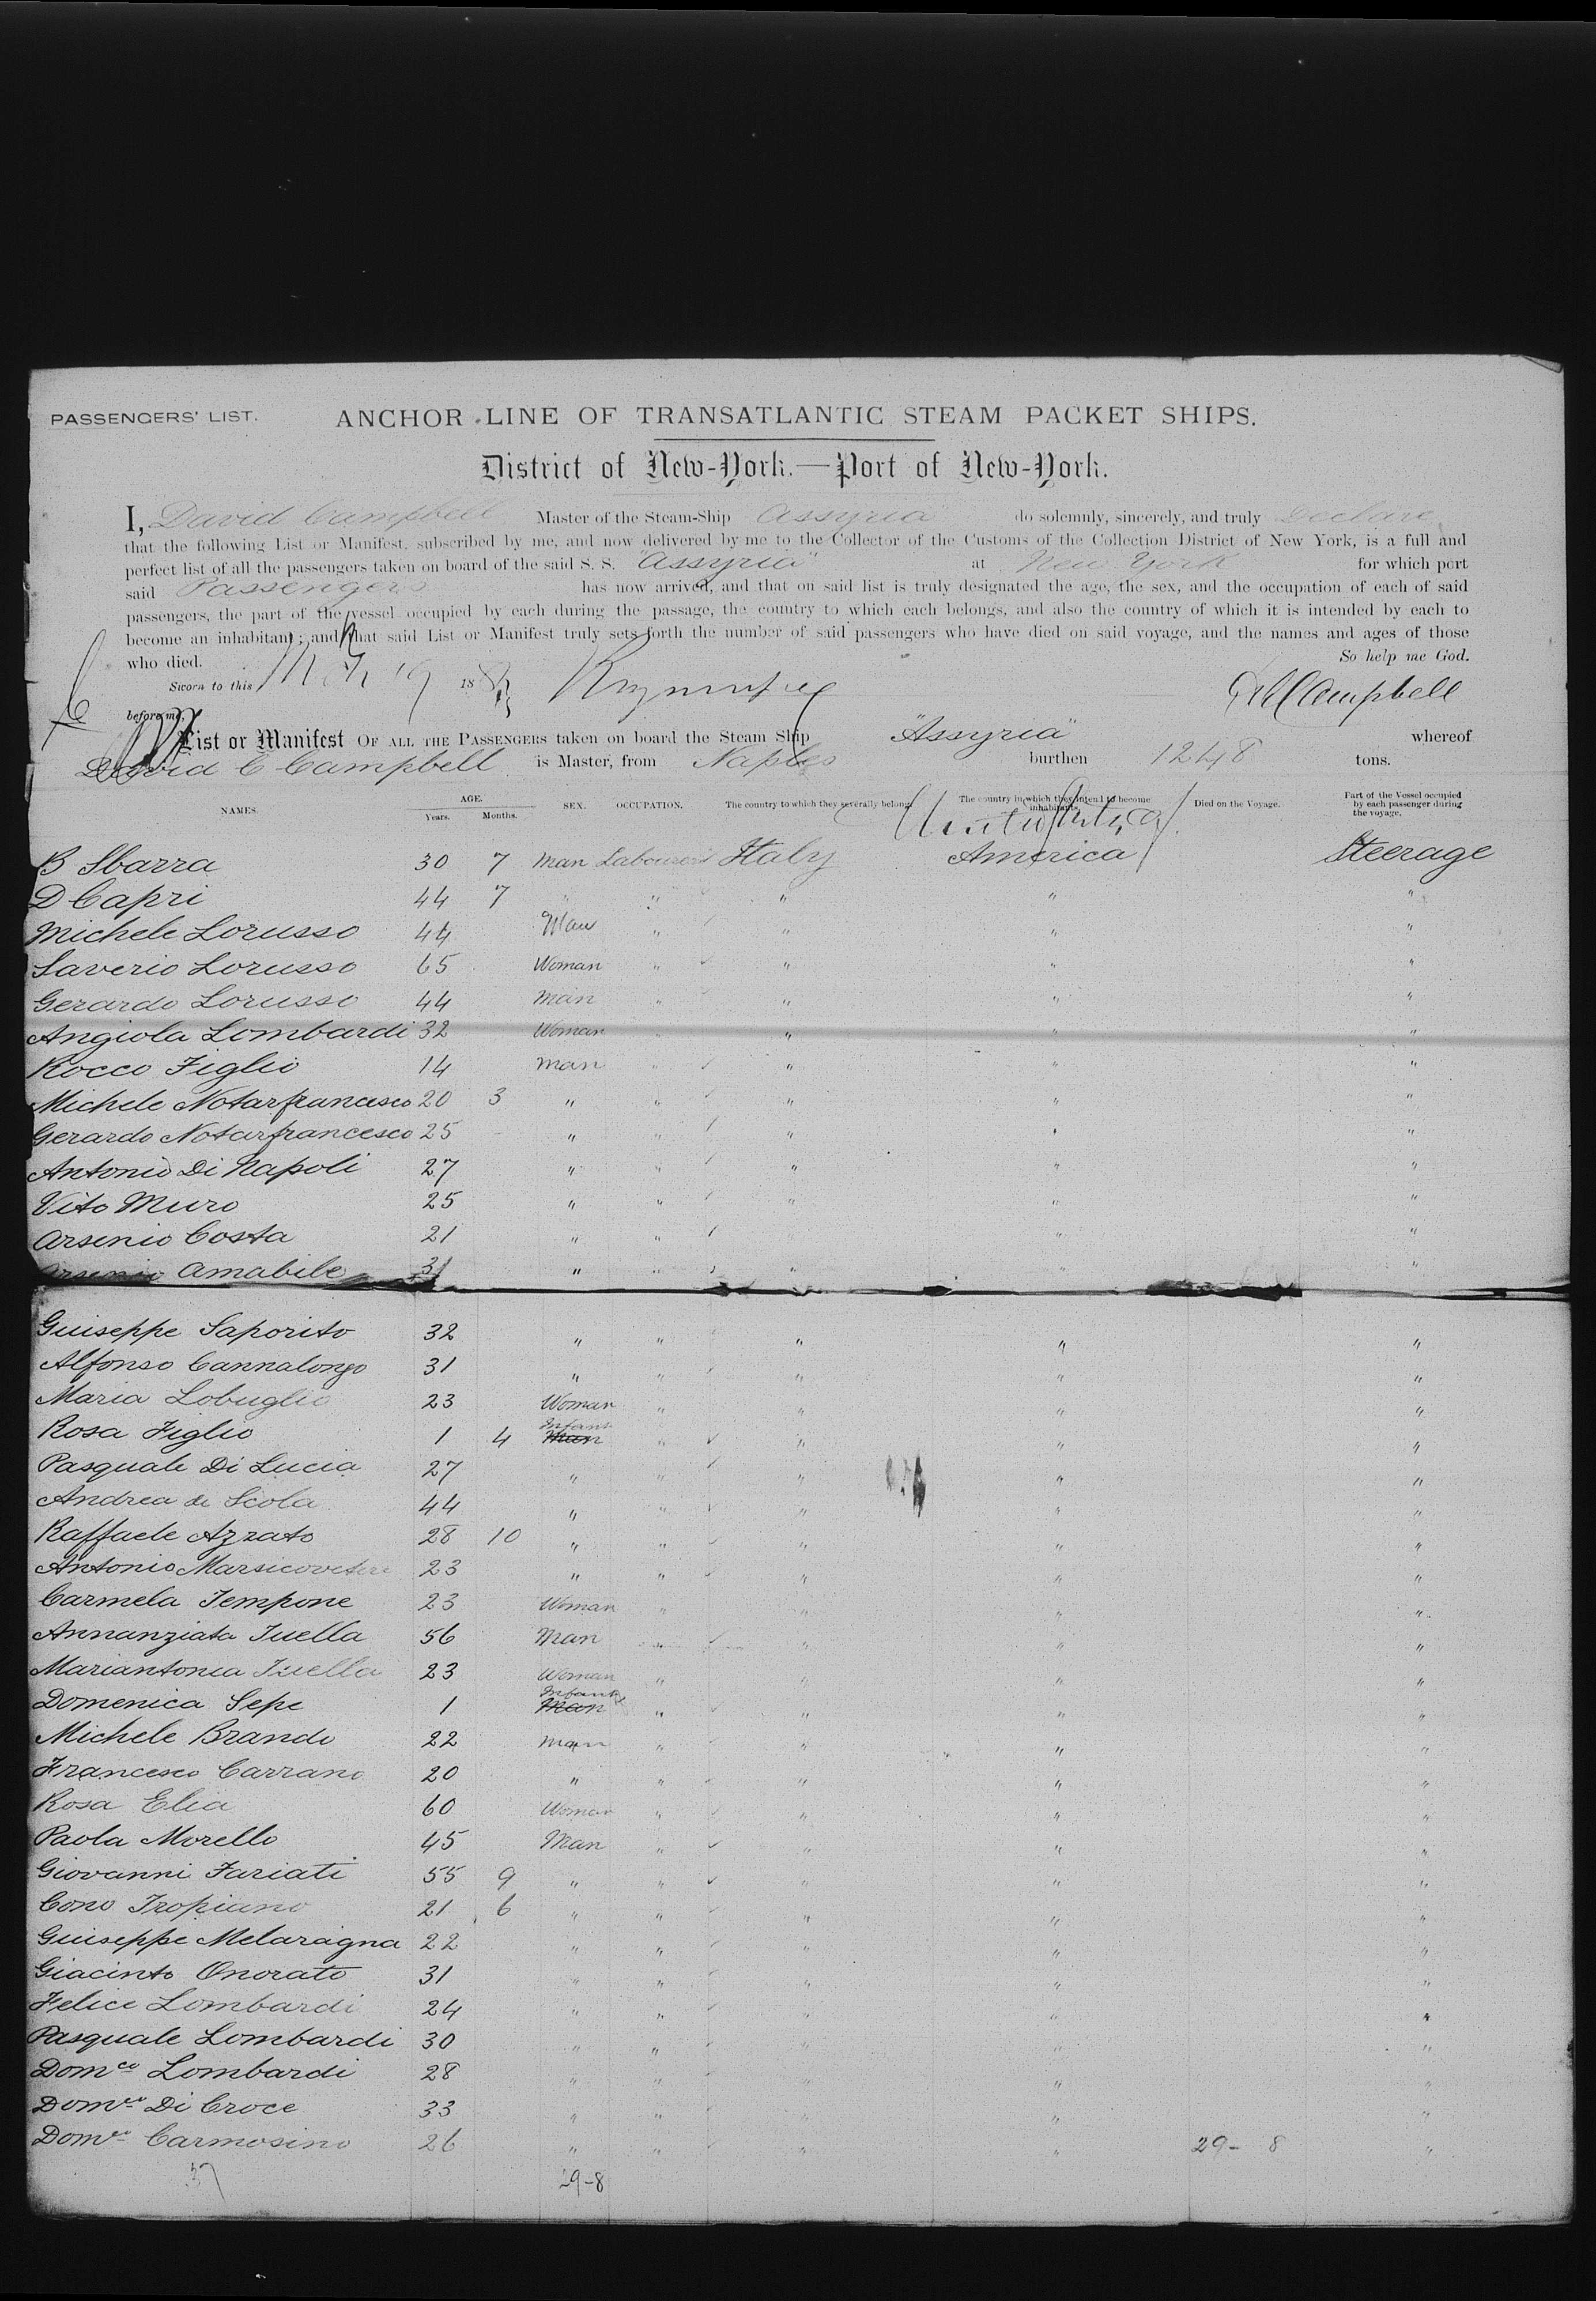 PASSENGERS' LIST. ANCHOR LINE OF TRANSATLANTIC STEAM PACKET SHIPS.
District of New-York.—Port of New-York.
I, David Campbell Master of the Steam-Ship Assyria do solemnly, sincerely, and truly Declare
that the following List or Manifest, subscribed by me, and now delivered by me to the Collector of the Customs of the Collection District of New York, is a full and
perfect list of all the passengers taken on board of the said S. S. "Assyria" at New York for which port
said Passengers has now arrived, and that on said list is truly designated the age, the sex, and the occupation of each of said
passengers, the part of the vessel occupied by each during the passage, the country to which each belongs, and also the country of which it is intended by each to
become an inhabitant; and that said List or Manifest truly sets forth the number of said passengers who have died on said voyage, and the names and ages of those
who died. So help me God.
Sworn to this 19 18 Campbell
before me,
List or Manifest OF ALL THE PASSENGERS taken on board the Steam Ship "Assyria" whereof
David C Campbell is Master, from Naples burthen 1248 tons.
NAMES. AGE. Years. Months. SEX. OCCUPATION. The country to which they severally belong. The country in which they intend to become inhabitants. Died on the Voyage. Part of the Vessel occupied by each passenger during the voyage.
United States of
B Sbarra 30 7 Man Labourers Italy America Steerage
D Capri 44 7 " " " " "
Michele Lorusso 44 Man " " " "
Saverio Lorusso 65 Woman " " " "
Gerardo Lorusso 44 Man " " " "
Angiola Lombardi 32 Woman " " " "
Rocco Figlio 14 Man " " " "
Michele Notarfrancesco 20 3 " " " " "
Gerardo Notarfrancesco 25 " " " " "
Antonio Di Napoli 27 " " " " "
Vito Muro 25 " " " " "
Arsenio Costa 21 " " " " "
Arsenio Amabile 31 " " " " "
Guiseppe Saporito 32 " " " " "
Alfonso Cannalongo 31 " " " " "
Maria Lobuglio 23 Woman " " " "
Rosa Figlio 1 4 Infant " " " "
Pasquale Di Lucia 27 " " " " "
Andrea de Scola 44 " " " " "
Raffaele Azzato 28 10 " " " " "
Antonio Marsicovetere 23 " " " " "
Carmela Tempone 23 Woman " " " "
Annanziata Iuella 56 Man " " " "
Mariantonia Iuella 23 Woman " " " "
Domenica Sepe 1 Infant " " " "
Michele Brando 22 Man " " " "
Francesco Carrano 20 " " " " "
Rosa Elia 60 Woman " " " "
Paola Morello 45 Man " " " "
Giovanni Fariati 55 9 " " " " "
Cono Tropiano 21 6 " " " " "
Guiseppe Melaragna 22 " " " " "
Giacinto Onorato 31 " " " " "
Felice Lombardi 24 " " " " "
Pasquale Lombardi 30 " " " " "
Domco Lombardi 28 " " " " "
Domco Di Croce 33 " " " " "
Domco Carmosino 26 " " " " 29- 8 "
37 29-8